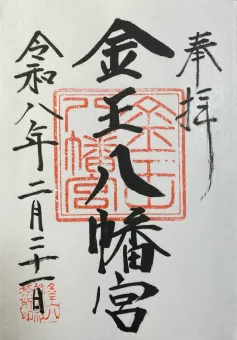 奉拝
金王八幡宮
令和八年二月二十一日
金王八幡宮